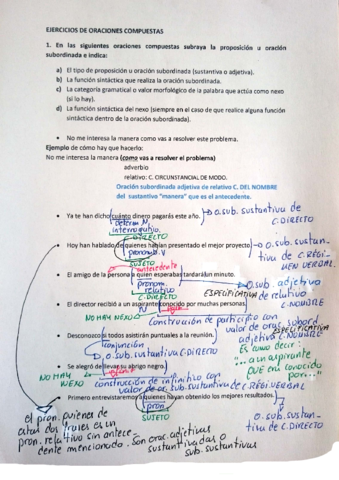 EJERCICIOS DE ORACIONES COMPUESTAS
1. En las siguientes oraciones compuestas subraya la proposición u oración
subordinada e indica:
a) El tipo de proposición u oración subordinada (sustantiva o adjetiva).
b) La función sintáctica que realiza la oración subordinada.
c) La categoría gramatical o valor morfológico de la palabra que actúa como nexo
(si lo hay).
d) La función sintáctica del nexo (siempre en el caso de que realice alguna función
sintáctica dentro de la oración subordinada).
• No me interesa la manera como vas a resolver este problema.
Ejemplo de cómo hay que hacerlo:
No me interesa la manera (como vas a resolver el problema)
adverbio
relativo: C. CIRCUNSTANCIAL DE MODO.
Oración subordinada adjetiva de relativo C. DEL NOMBRE
del sustantivo "manera" que es el antecedente.
• Ya te han dicho cuánto dinero pagarás este año. o.sub. sustantiva de
C.DIRECTO
determ. N
interrogativo.
C.DIRECTO
• Hoy han hablado de quienes habían presentado el mejor proyecto. o.sub. sustan-
tiva de C.RÉGI-
MEN VERBAL
pronom. V
SUJETO
antecedente
• El amigo de la persona a quien esperabas tardará un minuto.
o.sub. adjetiva
ESPECIFICATIVA de relativo
C.NOMBRE
pronom.
relativo
C.DIRECTO
N
• El director recibió a un aspirante conocido por muchas personas.
NO HAY NEXO
construcción de participio con
valor de orac. subord.
adjetiva ESPECIFICATIVA
C.NOMBRE
• Desconozco si todos asistirán puntuales a la reunión.
conjunción
o.sub. sustantiva C.DIRECTO
Es como decir:
"...a un aspirante
QUE era conocido
por..."
• Se alegró de llevar su abrigo negro.
NO HAY
NEXO
construcción de infinitivo con
valor de or. sub. sustantiva de C.RÉGI. VERBAL
• Primero entrevistaremos a quienes hayan obtenido los mejores resultados.
pron.
SUJETO
o.sub. sustan-
tiva de C.DIRECTO
el pron. quienes de
estas dos frases es un
pron. relativo sin antece-
dente mencionado. Son orac. adjetivas
sustantivadas o
sub. sustantivas